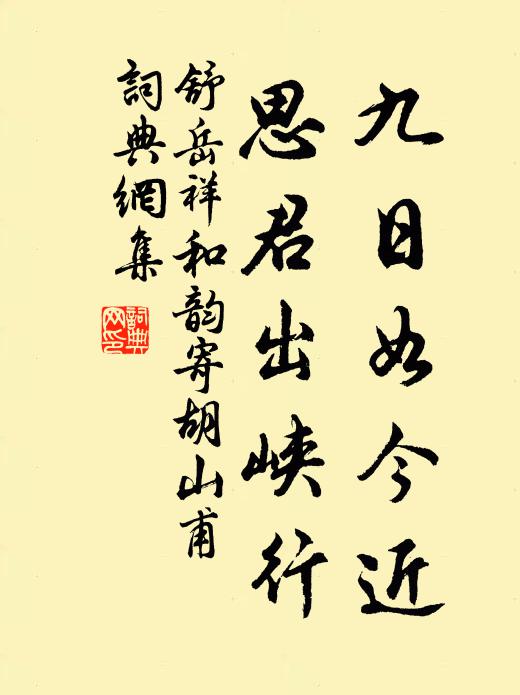 九日如今近
思君出峽行
舒岳祥和韵寄胡山甫
詞典網集
詞典网印